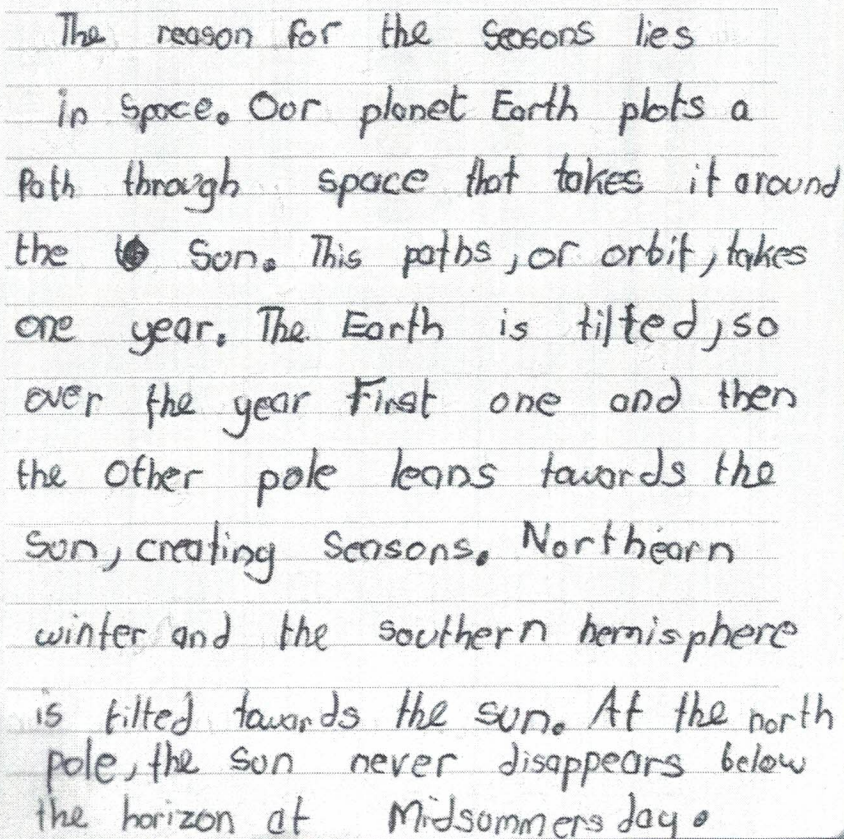 The reason for the seasons lies
in space. Our planet Earth plots a
Path through space that takes it around
the Sun. This paths, or orbit, takes
one year. The Earth is tilted, so
over the year First one and then
the Other pole leans towards the
Sun, creating Seasons. Northearn
winter and the southern hemisphere
is tilted towards the sun. At the north
pole, the sun never disappears below
the horizon at Midsummers day.